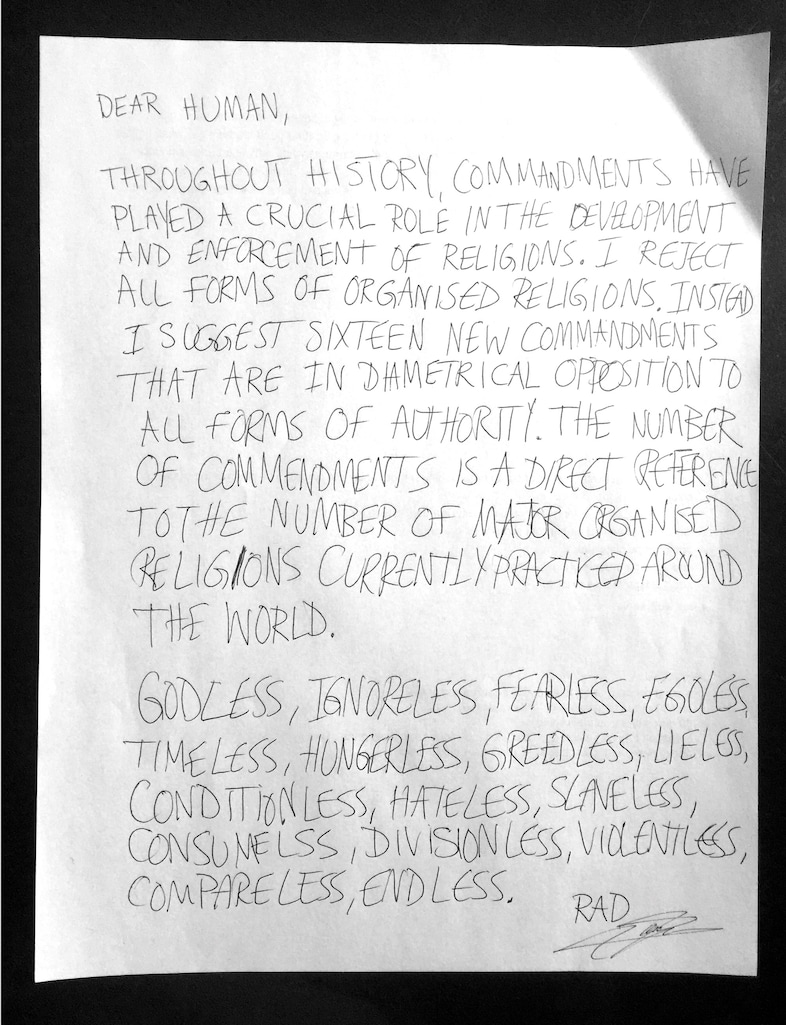 DEAR HUMAN,
THROUGHOUT HISTORY, COMMANDMENTS HAVE
PLAYED A CRUCIAL ROLE IN THE DEVELOPMENT
AND ENFORCEMENT OF RELIGIONS. I REJECT
ALL FORMS OF ORGANISED RELIGIONS. INSTEAD
I SUGGEST SIXTEEN NEW COMMANDMENTS
THAT ARE IN DIAMETRICAL OPPOSITION TO
ALL FORMS OF AUTHORITY. THE NUMBER
OF COMMENDMENTS IS A DIRECT REFERENCE
TO THE NUMBER OF MAJOR ORGANISED
RELIGIONS CURRENTLY PRACTICED AROUND
THE WORLD.
GODLESS, IGNORELESS, FEARLESS, EGOLESS,
TIMELESS, HUNGERLESS, GREEDLESS, LIELESS,
CONDITIONLESS, HATELESS, SLAVELESS,
CONSUMELSS, DIVISIONLESS, VIOLENTLESS,
COMPARELESS, ENDLESS.
RAD